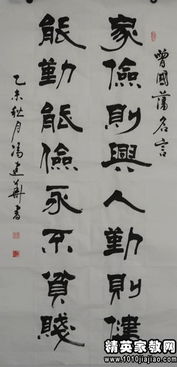 曾國藩名言
家儉則興人勤則健
能勤能儉永不貧賤
乙未秋月馮建華書
精英家教网
www.1010jiajiao.com